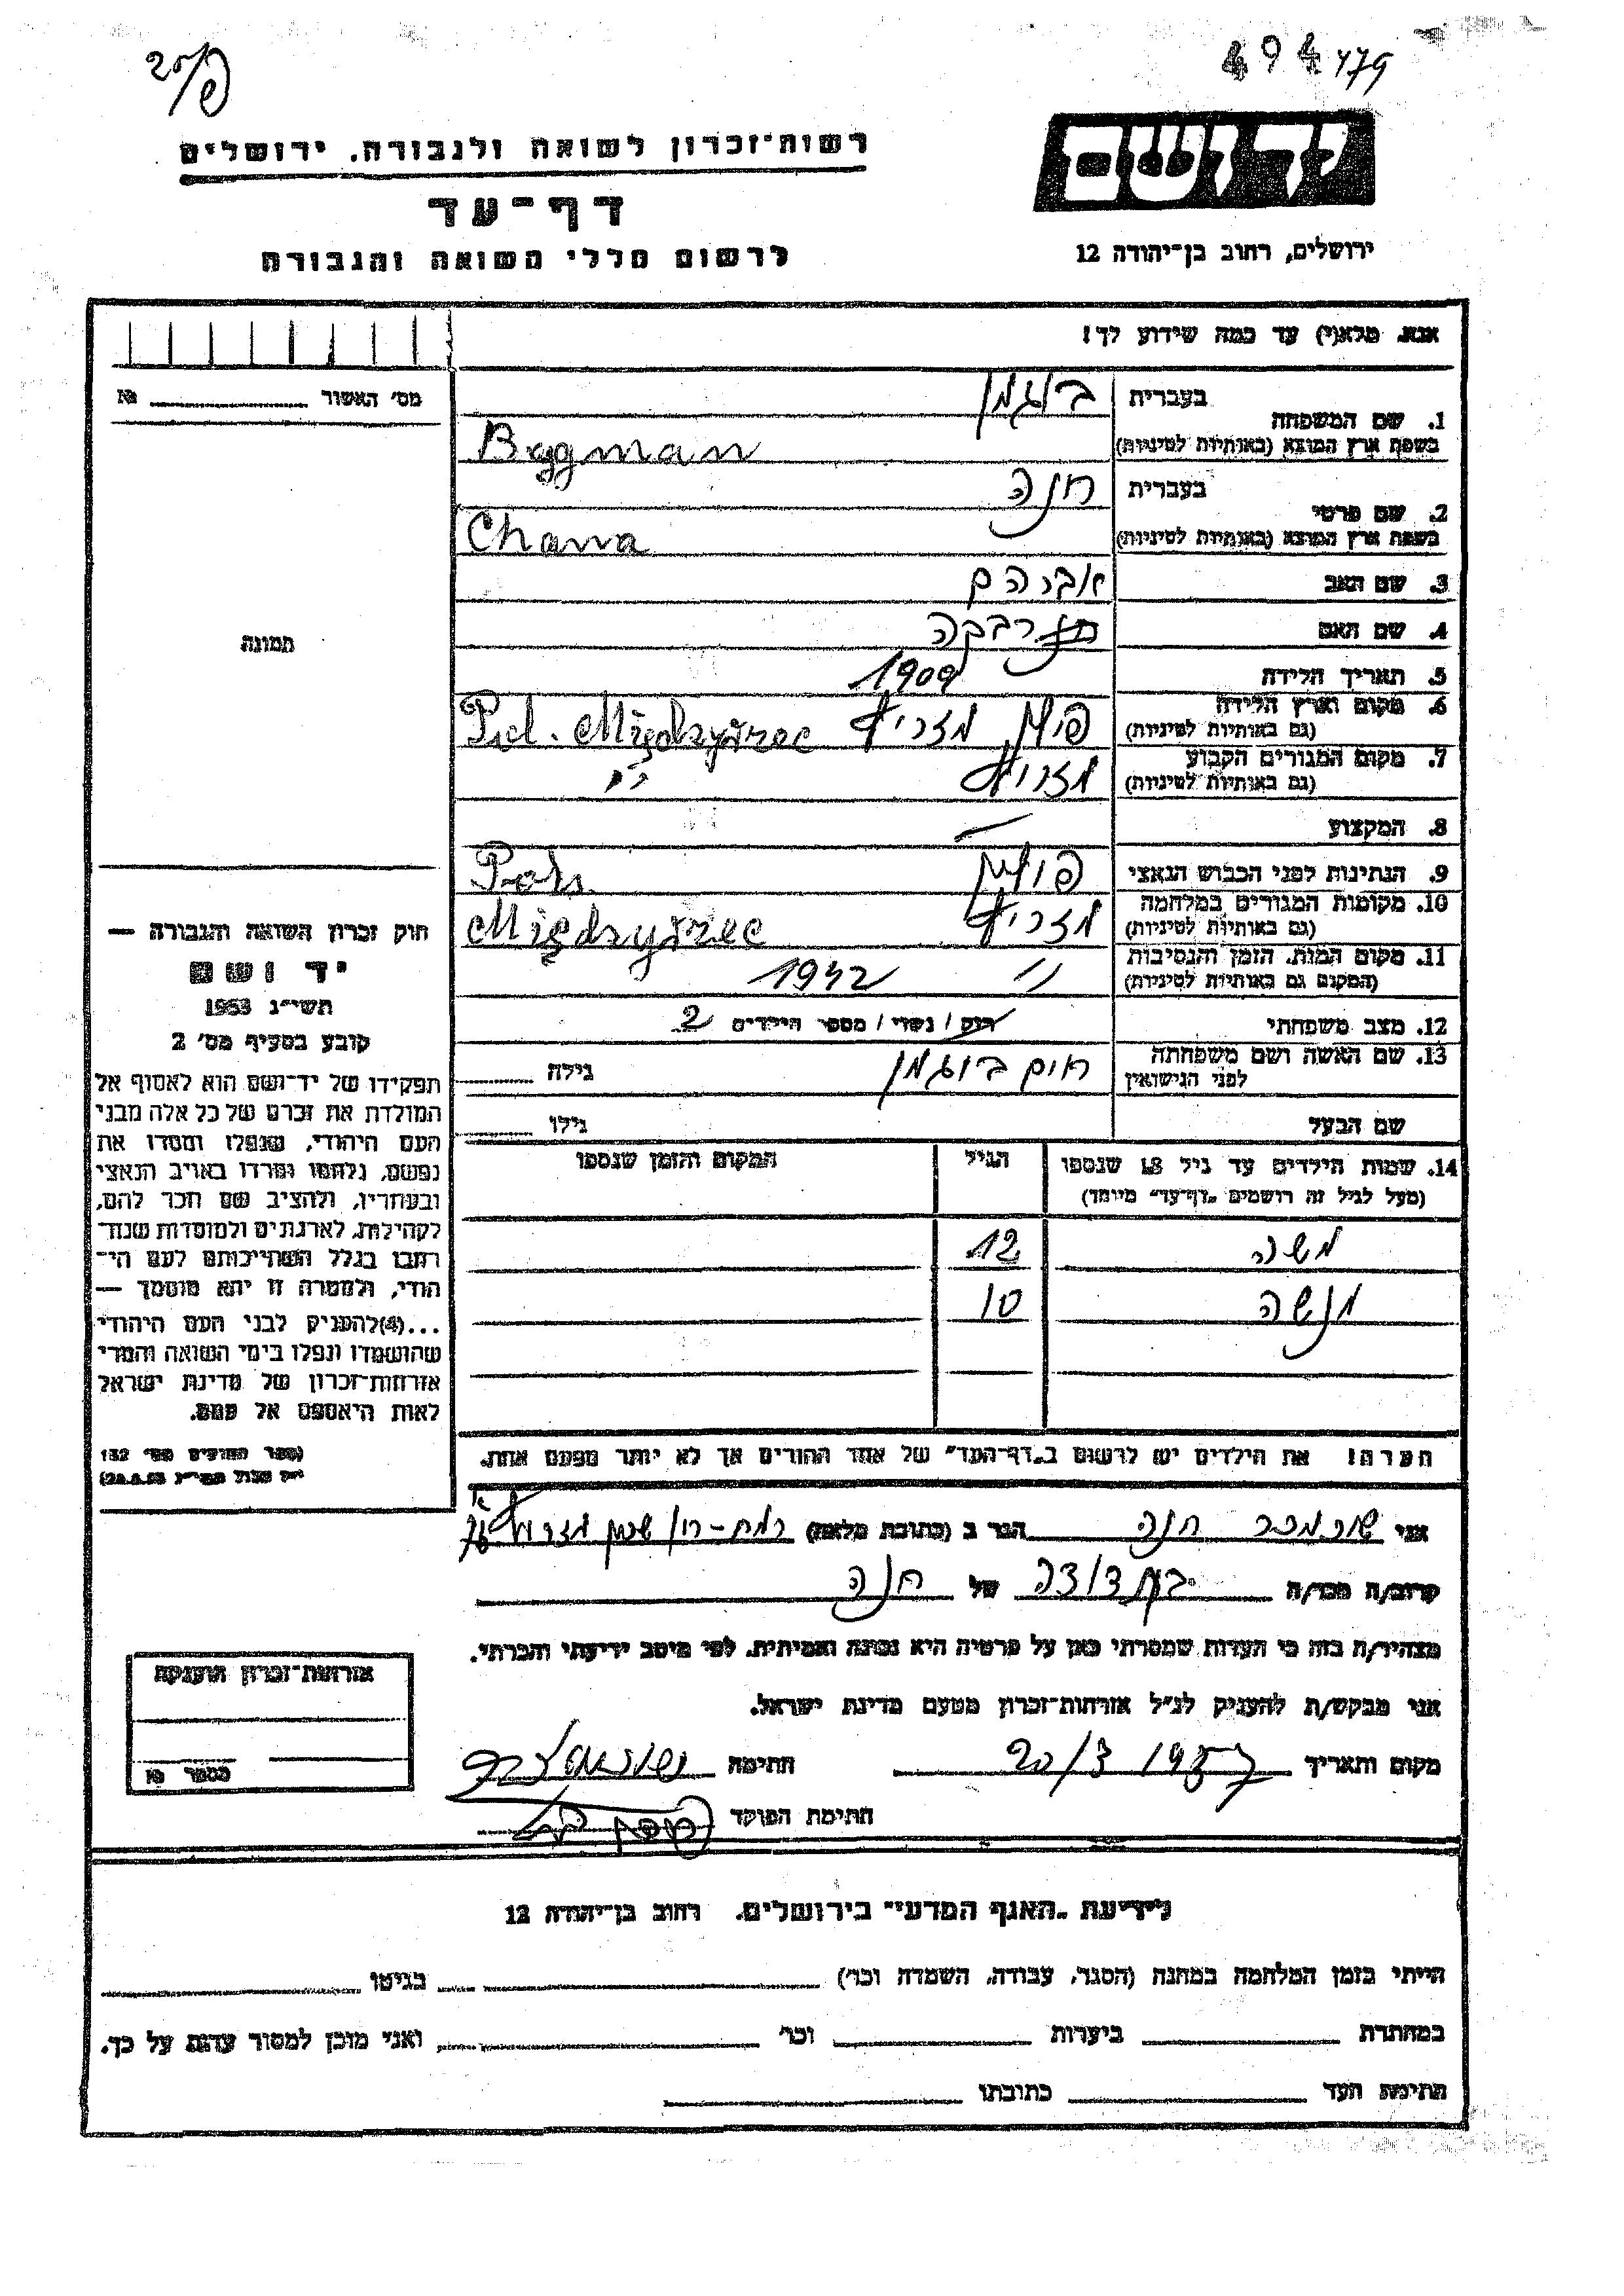 494479
רשות־זכרון לשואה ולגבורה. ירושלים
יד ושם
דף־עד
לרשום חללי השואה והגבורה
ירושלים, רחוב בן־יהודה 12
אנא. מלא(י) עד כמה שידוע לך!
מס' האשור № 
1. שם המשפחה
בעברית בוגמן
בשפת ארץ המוצא (באותיות לטיניות) Bygman
2. שם פרטי
בעברית חנה
בשפת ארץ המוצא (באותיות לטיניות) Chana
3. שם האב אברהם
4. שם האם רבקה
5. תאריך הלידה 1909
6. מקום וארץ הלידה
(גם באותיות לטיניות) פולין מזריץ Pol. Międzyżrec
7. מקום המגורים הקבוע
(גם באותיות לטיניות) מזריץ
8. המקצוע —
9. הנתינות לפני הכבוש הנאצי פולין Pols.
10. מקומות המגורים במלחמה
(גם באותיות לטיניות) מזריץ Międzyżrec
11. מקום המות. הזמן והנסיבות
(המקום גם באותיות לטיניות) 1942
12. מצב משפחתי רווק / נשוי / מספר הילדים 2
13. שם האשה ושם משפחתה
לפני הנישואין חיים בוגמן גילה
שם הבעל גילו
14. שמות הילדים עד גיל 18 שנספו
(מעל לגיל זה רושמים „דף־עד" מיוחד)
הגיל
המקום והזמן שנספו
משה 12
מנשה 10
תמונה
חוק זכרון השואה והגבורה —
יד ושם
תשי״ג 1953
קובע בסעיף מס' 2
תפקידו של יד־ושם הוא לאסוף אל
המולדת את זכרם של כל אלה מבני
העם היהודי, שנפלו ומסרו את
נפשם, נלחמו ומרדו באויב הנאצי
ובעוזריו, ולהציב שם וזכר להם,
לקהילות, לארגונים ולמוסדות שנח־
רבו בגלל השתייכותם לעם הי־
הודי, ולמטרה זו יהא מוסמך —
...(4) להעניק לבני העם היהודי
שהושמדו ונפלו בימי השואה והמרי
אזרחות־זכרון של מדינת ישראל
לאות היאספם אל עמם.
(ספר החוקים מס' 132
הערה! את הילדים יש לרשום ב„דף־העד" של אחד ההורים אך לא יותר מפעם אחת.
אני חנה הגר ב (כתובת מלאה) רמת-גן שכון
קרוב/ה מכר/ה בת דודה של חנה
מצהיר/ה בזה כי העדות שמסרתי כאן על פרטיה היא נכונה ואמיתית. לפי מיטב ידיעתי והכרתי.
אני מבקש/ת להעניק לנ״ל אזרחות־זכרון מטעם מדינת ישראל.
מקום ותאריך חתימה
חתימת הפוקד
אזרחות־זכרון הוענקה
מספר
לידיעת „האגף המדעי" בירושלים. רחוב בן־יהודה 12
הייתי בזמן המלחמה במחנה (הסגר, עבודה, השמדה וכו') בגיטו
במחתרת ביערות וכו' ואני מוכן למסור עדות על כך.
חתימת העד כתובתו